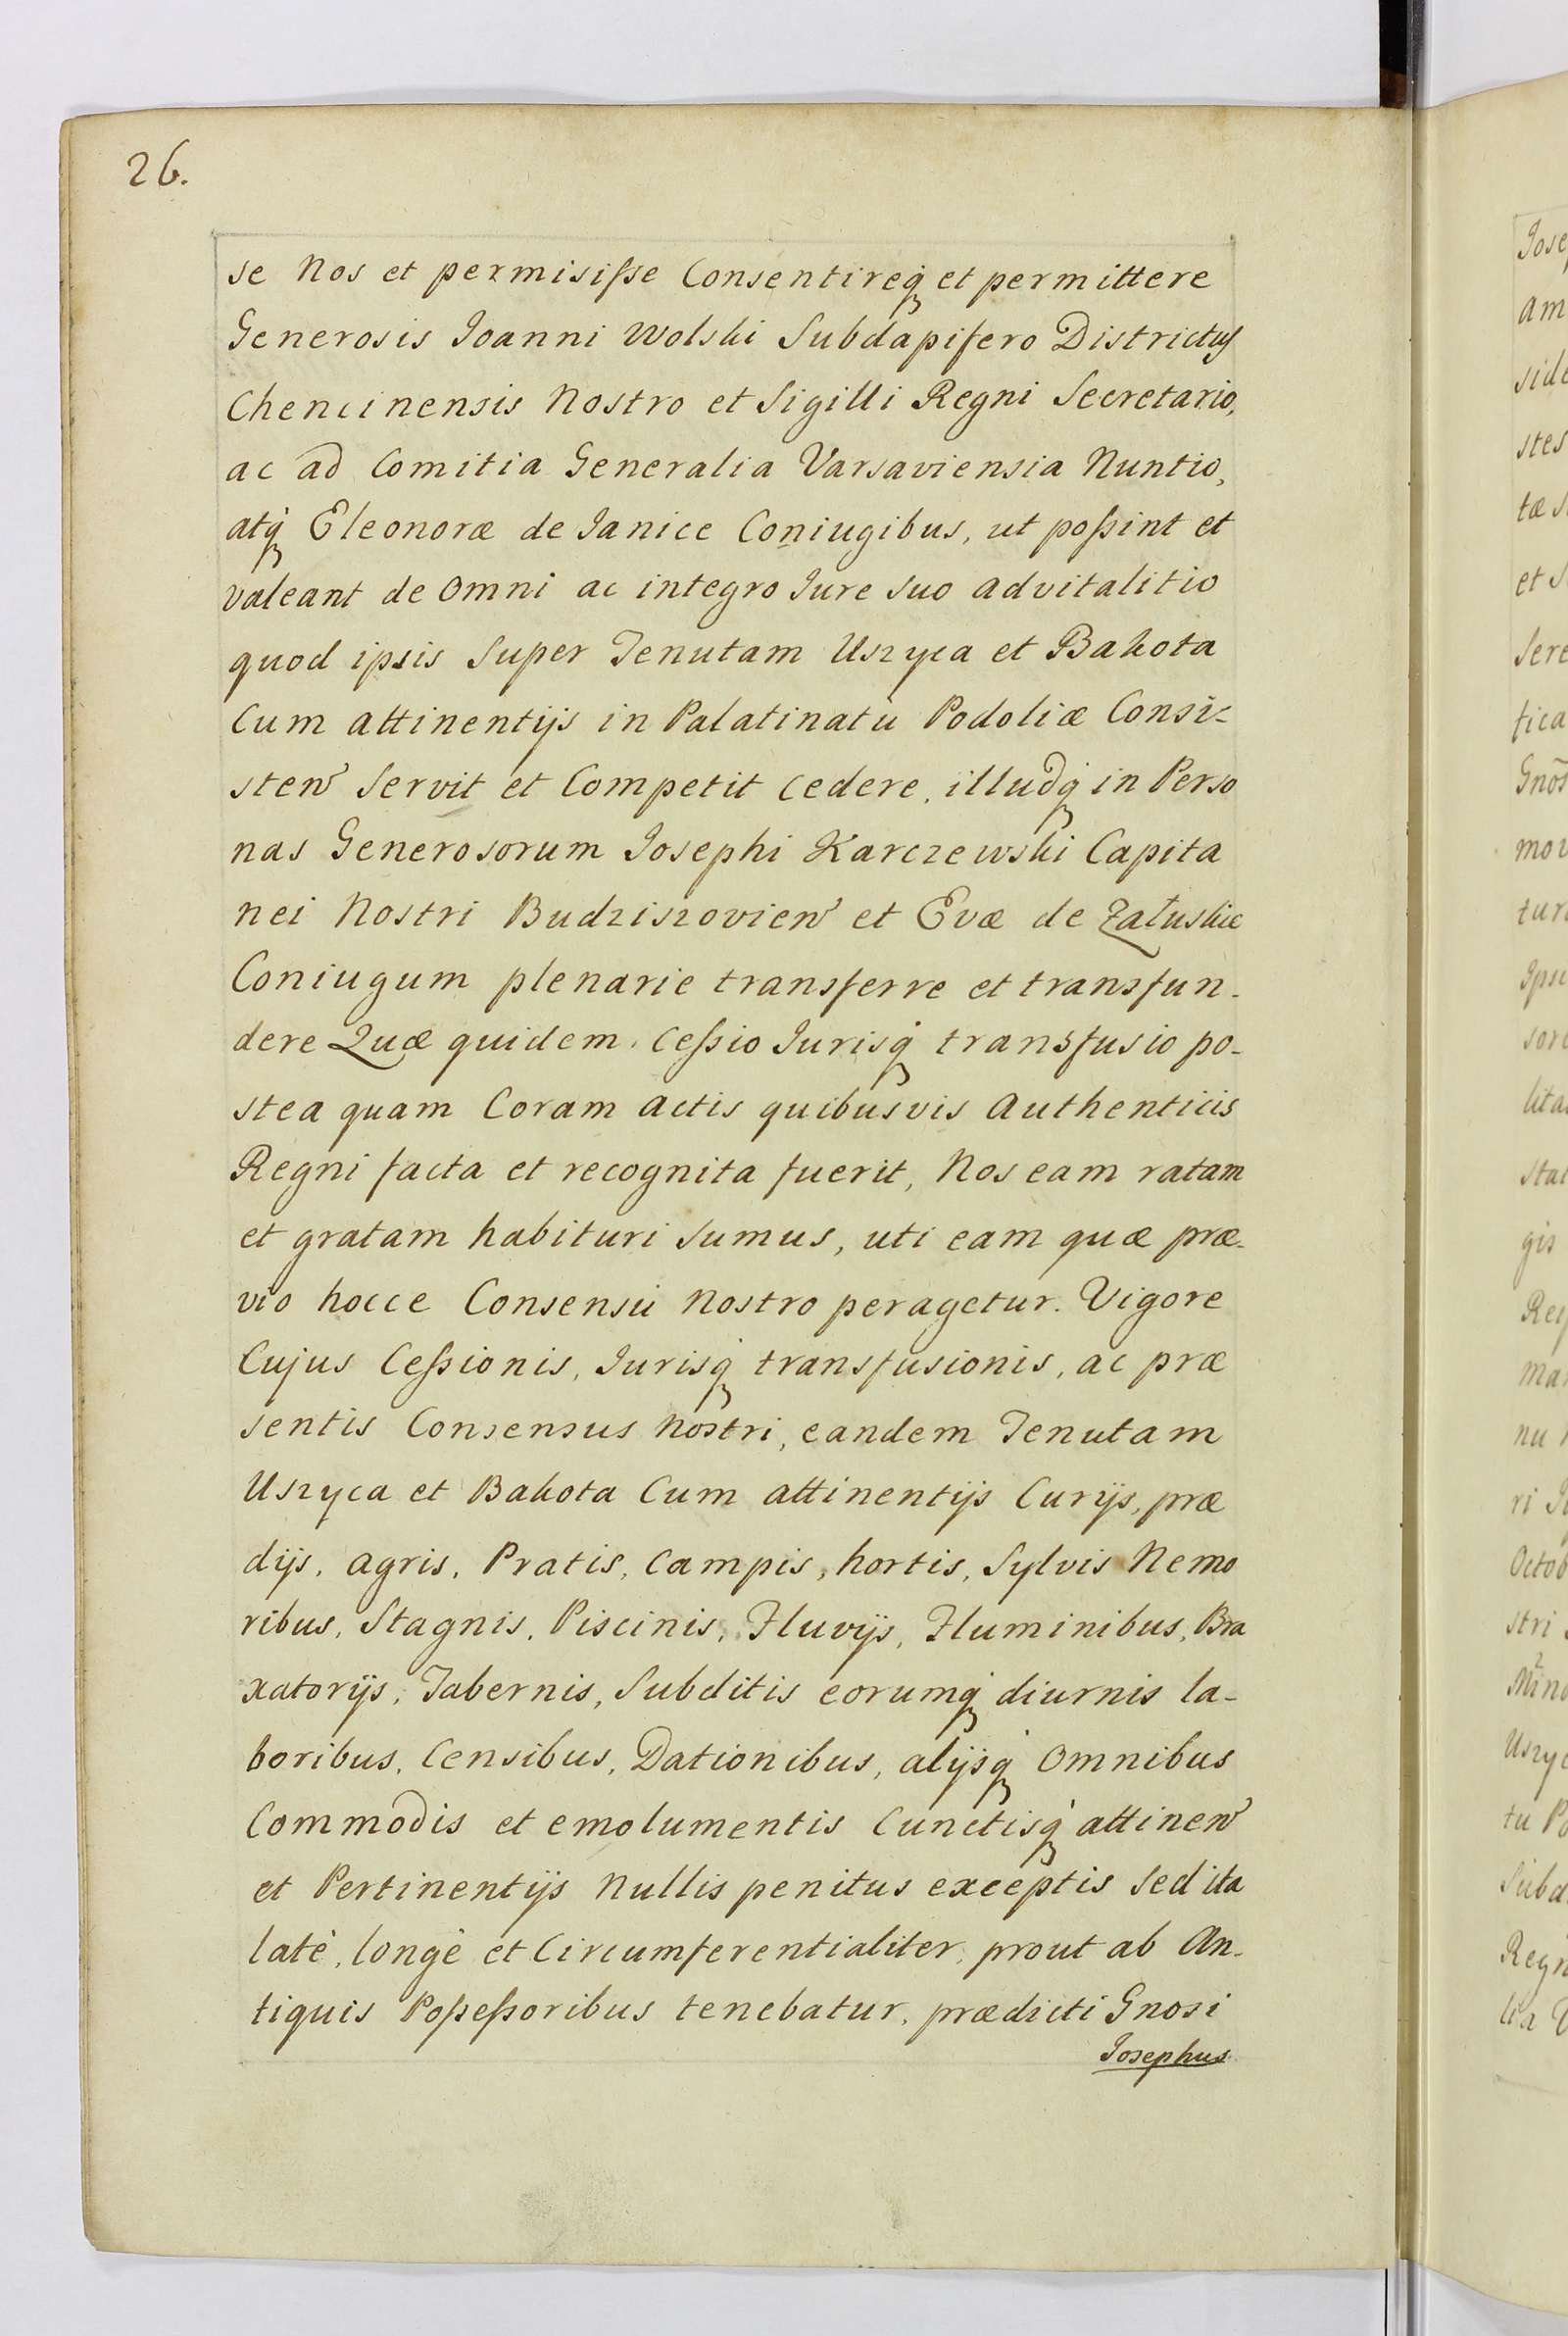 26.
se Nos et permisiſse Consentireq́ȝ et permittere
Generosis Joanni Wolski Subdapifero Districtus
Chencinensis Nostro et Sigilli Regni Secretario,
ac ad Comitia Generalia Varsaviensia Nuntio,
atq́ȝ Eleonoræ de Janice Coniugibus, ut poſsint et
valeant de Omni ac integro Jure suo advitalitio
quod ipsis Super Tenutam Uszyca et Bakota
Cum attinentijs in Palatinatu Podoliæ Consi-
sten̄ Servit et Competit cedere, illudq́ȝ in Perso
nas Generosorum Josephi Karczewski Capita
nei Nostri Budziszovien̄ et Evæ de Załuskie
Coniugum plenarie transferre et transfun-
dere Quæ quidem Ceſsio Jurisq́ȝ transfusio po-
stea quam Coram actis quibusvis Authenticis
Regni facta et recognita fuerit, Nos eam ratam
et gratam habituri sumus, uti eam quæ præ-
vio hocce Consensu Nostro peragetur. Vigore
Cujus Ceſsionis, Jurisq́ȝ transfusionis, ac præ
sentis Consensus Nostri, eandem Tenutam
Uszyca et Bakota Cum attinentijs Curijs, præ
dijs, agris, Pratis, Campis, hortis, Sylvis Nemo
ribus, Stagnis, Piscinis, Fluvijs, Fluminibus, Bra
xatorijs, Tabernis, Subditis eorumq́ȝ diurnis la-
boribus, Censibus, Dationibus, alijsq́ȝ Omnibus
Commodis et emolumentis Cunctisq́ȝ attinen̄
et Pertinentijs Nullis penitus exceptis Sed ita
latè, longè et Circumferentialiter, prout ab An-
tiquis Poſseſsoribus tenebatur, prædicti Gnosi
Josephus